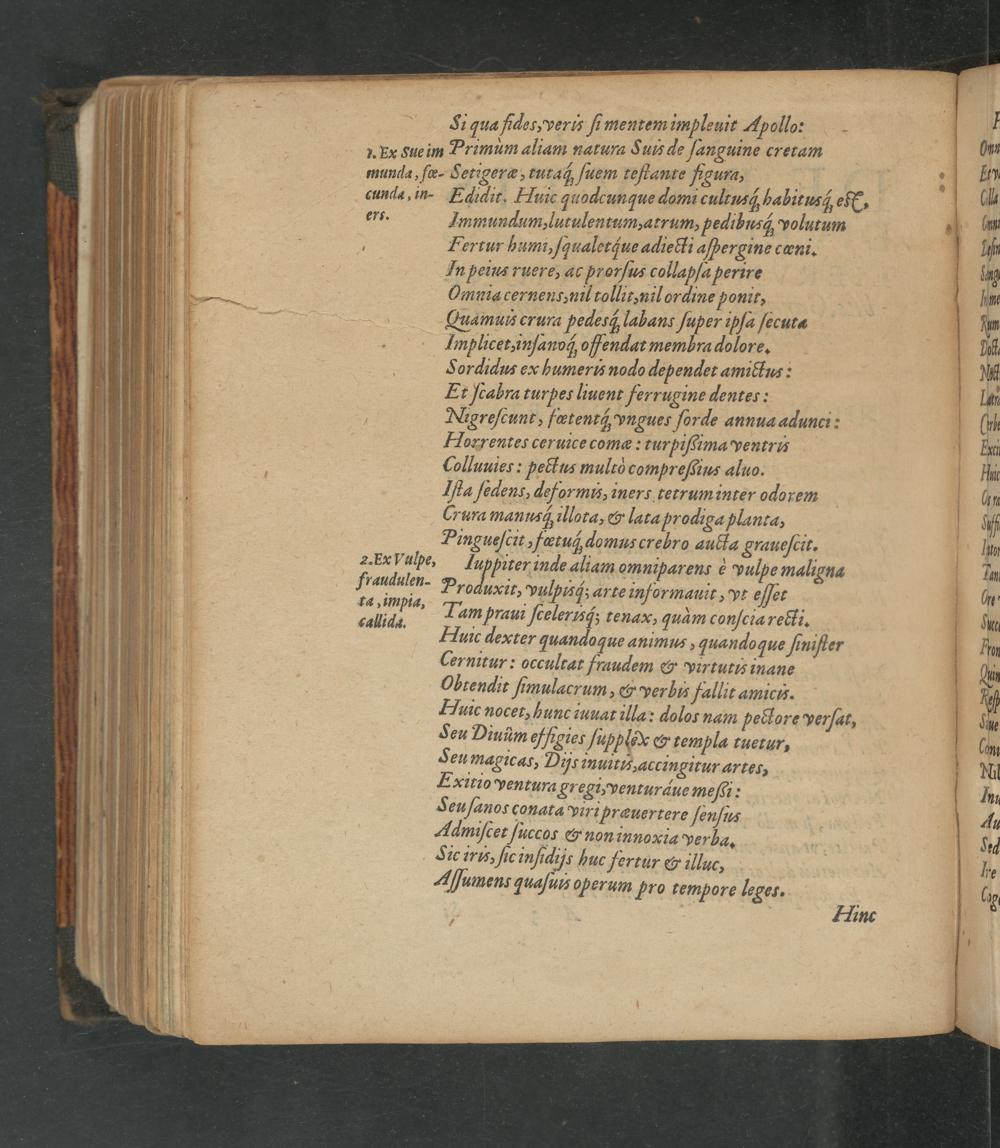 Si qua fides, veris ſi mentem impleuit Apollo:
1. Ex Sue im
munda, fœ-
cunda, in-
ers.
Primùm aliam natura Suis de ſanguine cretam
Setigeræ, tutaq́; ſuem teſtante figura,
Edidit. Huic quodcunque domi cultusq́; habitusq́; eſt,
Immundum, lutulentum, atrum, pedibusq́; volutum
Fertur humi, ſqualetq́ue adiecti aſpergine cœni.
In peius ruere, ac prorſus collapſa perire
Omnia cernens, nil tollit, nil ordine ponit,
Quamuis crura pedesq́; labans ſuper ipſa ſecuta
Implicet, inſanoq́; offendat membra dolore.
Sordidus ex humeris nodo dependet amictus:
Et ſcabra turpes liuent ferrugine dentes:
Nigreſcunt, fœtentq́; vngues ſorde annua adunci:
Horrentes ceruice comæ: turpißima ventris
Colluuies: pectus multò compreßius aluo.
Iſta ſedens, deformis, iners tetrum inter odorem
Crura manusq́; illota, & lata prodiga planta,
Pingueſcit, fœtuq́; domus crebro aucta graueſcit.
2. Ex Vulpe,
fraudulen-
ta, impia,
callida.
Iuppiter inde aliam omniparens è vulpe maligna
Produxit, vulpisq́; arte informauit, vt eſſet
Tam praui ſcelerisq́; tenax, quàm conſcia recti.
Huic dexter quandoque animus, quandoque ſiniſter
Cernitur: occultat fraudem & virtutis inane
Obtendit ſimulacrum, & verbis fallit amicis.
Huic nocet, hunc iuuat illa: dolos nam pectore verſat,
Seu Diuûm effigies ſupplex & templa tuetur,
Seu magicas, Dijs inuitis, accingitur artes,
Exitio ventura gregi, venturáue meßi:
Seu ſanos conata viri præuertere ſenſus
Admiſcet ſuccos & non innoxia verba.
Sic iris, ſic inſidijs huc fertur & illuc,
Aſſumens quaſuis operum pro tempore leges.
Hinc